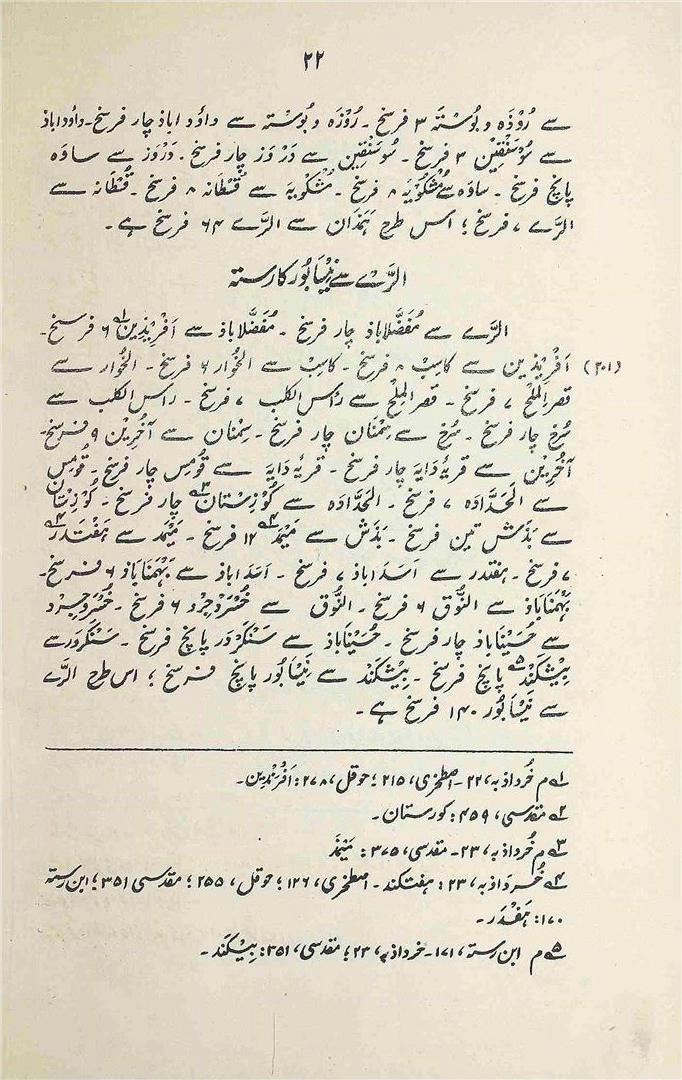 ۲۲
سے رُوْذَہ و بُوسْتَہ ۳ فرسخ ۔ رُوْذَہ و بُوسْتہ سے داؤد اباذ چار فرسخ۔ داوٗداباذ
سے سُوْسَنْقِیْن ۳ فرسخ ۔ سُوسَنْقِین سے دَرْوَز چار فرسخ ۔ دَرْوَز سے ساوَہ
پانچ فرسخ ۔ ساوَہ سے مُشْکُویَہ ۸ فرسخ ۔ مُشْکویَہ سے قُسْطَانہ ۸ فرسخ ۔ قُسْطَانہ سے
الرَّے ۷ فرسخ ؛ اس طرح ہَمَذان سے الرَّے ۶۴ فرسخ ہے ۔
الرَّے سے نَیْسَابُور کا رستہ
الرَّے سے مُفَضَّلاباذ چار فرسخ ۔ مُفَضَّلاباذ سے اَفْرِیْذِین؂۱ ۶ فرسخ۔
(۲۰۱) اَفْرِیْذِین سے کاسِب ۸ فرسخ ۔ کاسِب سے الخُوار ۶ فرسخ ۔ الخُوار سے
قصرالمِلْح ۷ فرسخ ۔ قصرالمِلْح سے رأس الکلب ۷ فرسخ ۔ راس الکلب سے
سُرْخ چار فرسخ ۔ سُرْخ سے سِمْنَان چار فرسخ ۔ سِمْنان سے آخُرِیْن ۹ فرسخ۔
آخُرِیْن سے قریۂ دَایَہ چار فرسخ ۔ قریۂ دَایَہ سے قُومِس چار فرسخ ۔ قُومِس
سے الحَدَّادَہ ۷ فرسخ ۔ الحَدَّادَہ سے کُوْذِسْتان چار فرسخ ۔ کُوْذِسْتَان
سے بَذَش تین فرسخ ۔ بَذَش سے مَیْمَد ۱۲ فرسخ ۔ مَیْمَد سے ہَفْتَدَر؂۴
۷ فرسخ ۔ ہفتدر سے اَسَداباذ ۷ فرسخ ۔ اَسَداباذ سے بَہْمَنَاباذ ۶ فرسخ۔
بَہْمَنَاباذ سے النُّوق ۶ فرسخ ۔ النُّوق سے خُسْرَوجِرْد ۶ فرسخ ۔ خُسْرَوجِرْد
سے حُسَیْنَاباذ چار فرسخ ۔ حُسَیْنَاباذ سے سَنْکَرْدَر پانچ فرسخ ۔ سَنْکَرْدَرسے
بِیْشکَنْد؂۵ پانچ فرسخ ۔ بِیْشکَنْد سے نَیْسَابُور پانچ فرسخ ؛ اس طرح الرَّے
سے نَیْسَابُور ۱۴۰ فرسخ ہے ۔
؂۱ م خُرداذبہ، ۲۲ ۔ اصطَخری، ۲۱۵؛ حوقل، ۲۷۸: اَفْرَنْدِین ۔
؂۲ مقدسی، ۴۵۹: کورستان ۔
؂۳ م خُرداذبہ، ۲۳ ۔ مقدسی، ۳۷۵: مَیْمَذ
؂۴ خُرداذبہ، ۲۳: ہفتکند ۔ اصطَخری، ۱۲۶؛ حوقل، ۲۵۵؛ مقدسی ۳۵۱؛ ابن رستہ
۱۷۰: ہَفْدَر ۔
؂۵ م ابن رستہ، ۱۷۱ ۔ خرداذبہ، ۲۳؛ مقدسی، ۳۵۱: بِیْسکَنْد ۔